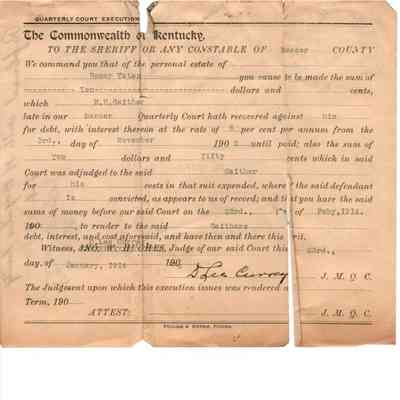 QUARTERLY COURT EXECUTION
The Commonwealth of Kentucky,
TO THE SHERIFF OR ANY CONSTABLE OF Mercer COUNTY
We command you that of the personal estate of
Roxey Yates you cause to be made the sum of
Ten dollars and cents,
which H.H.Gaither
late in our Quarterly Court hath recovered against him
for debt, with interest thereon at the rate of 6 per cent per annum from the
3rd., day of November 190 until paid; also the sum of
Two dollars and fifty cents which in said
Court was adjudged to the said Gaither
for his costs in that suit expended, where the said defendant
is convicted, as appears to us of record; and that you have the said
sums of money before our said Court on the 23rd., of Feby,1914.
190 to render to the said Gaithers
debt, interest, and cost aforesaid, and have then and there this writ.
Witness, Judge of our said Court this 23rd.,
day of January, 1914 190
D Lee Curry J. M. Q. C.
The Judgment upon which this execution issues was rendered
Term, 190
ATTEST: J. M. Q. C.